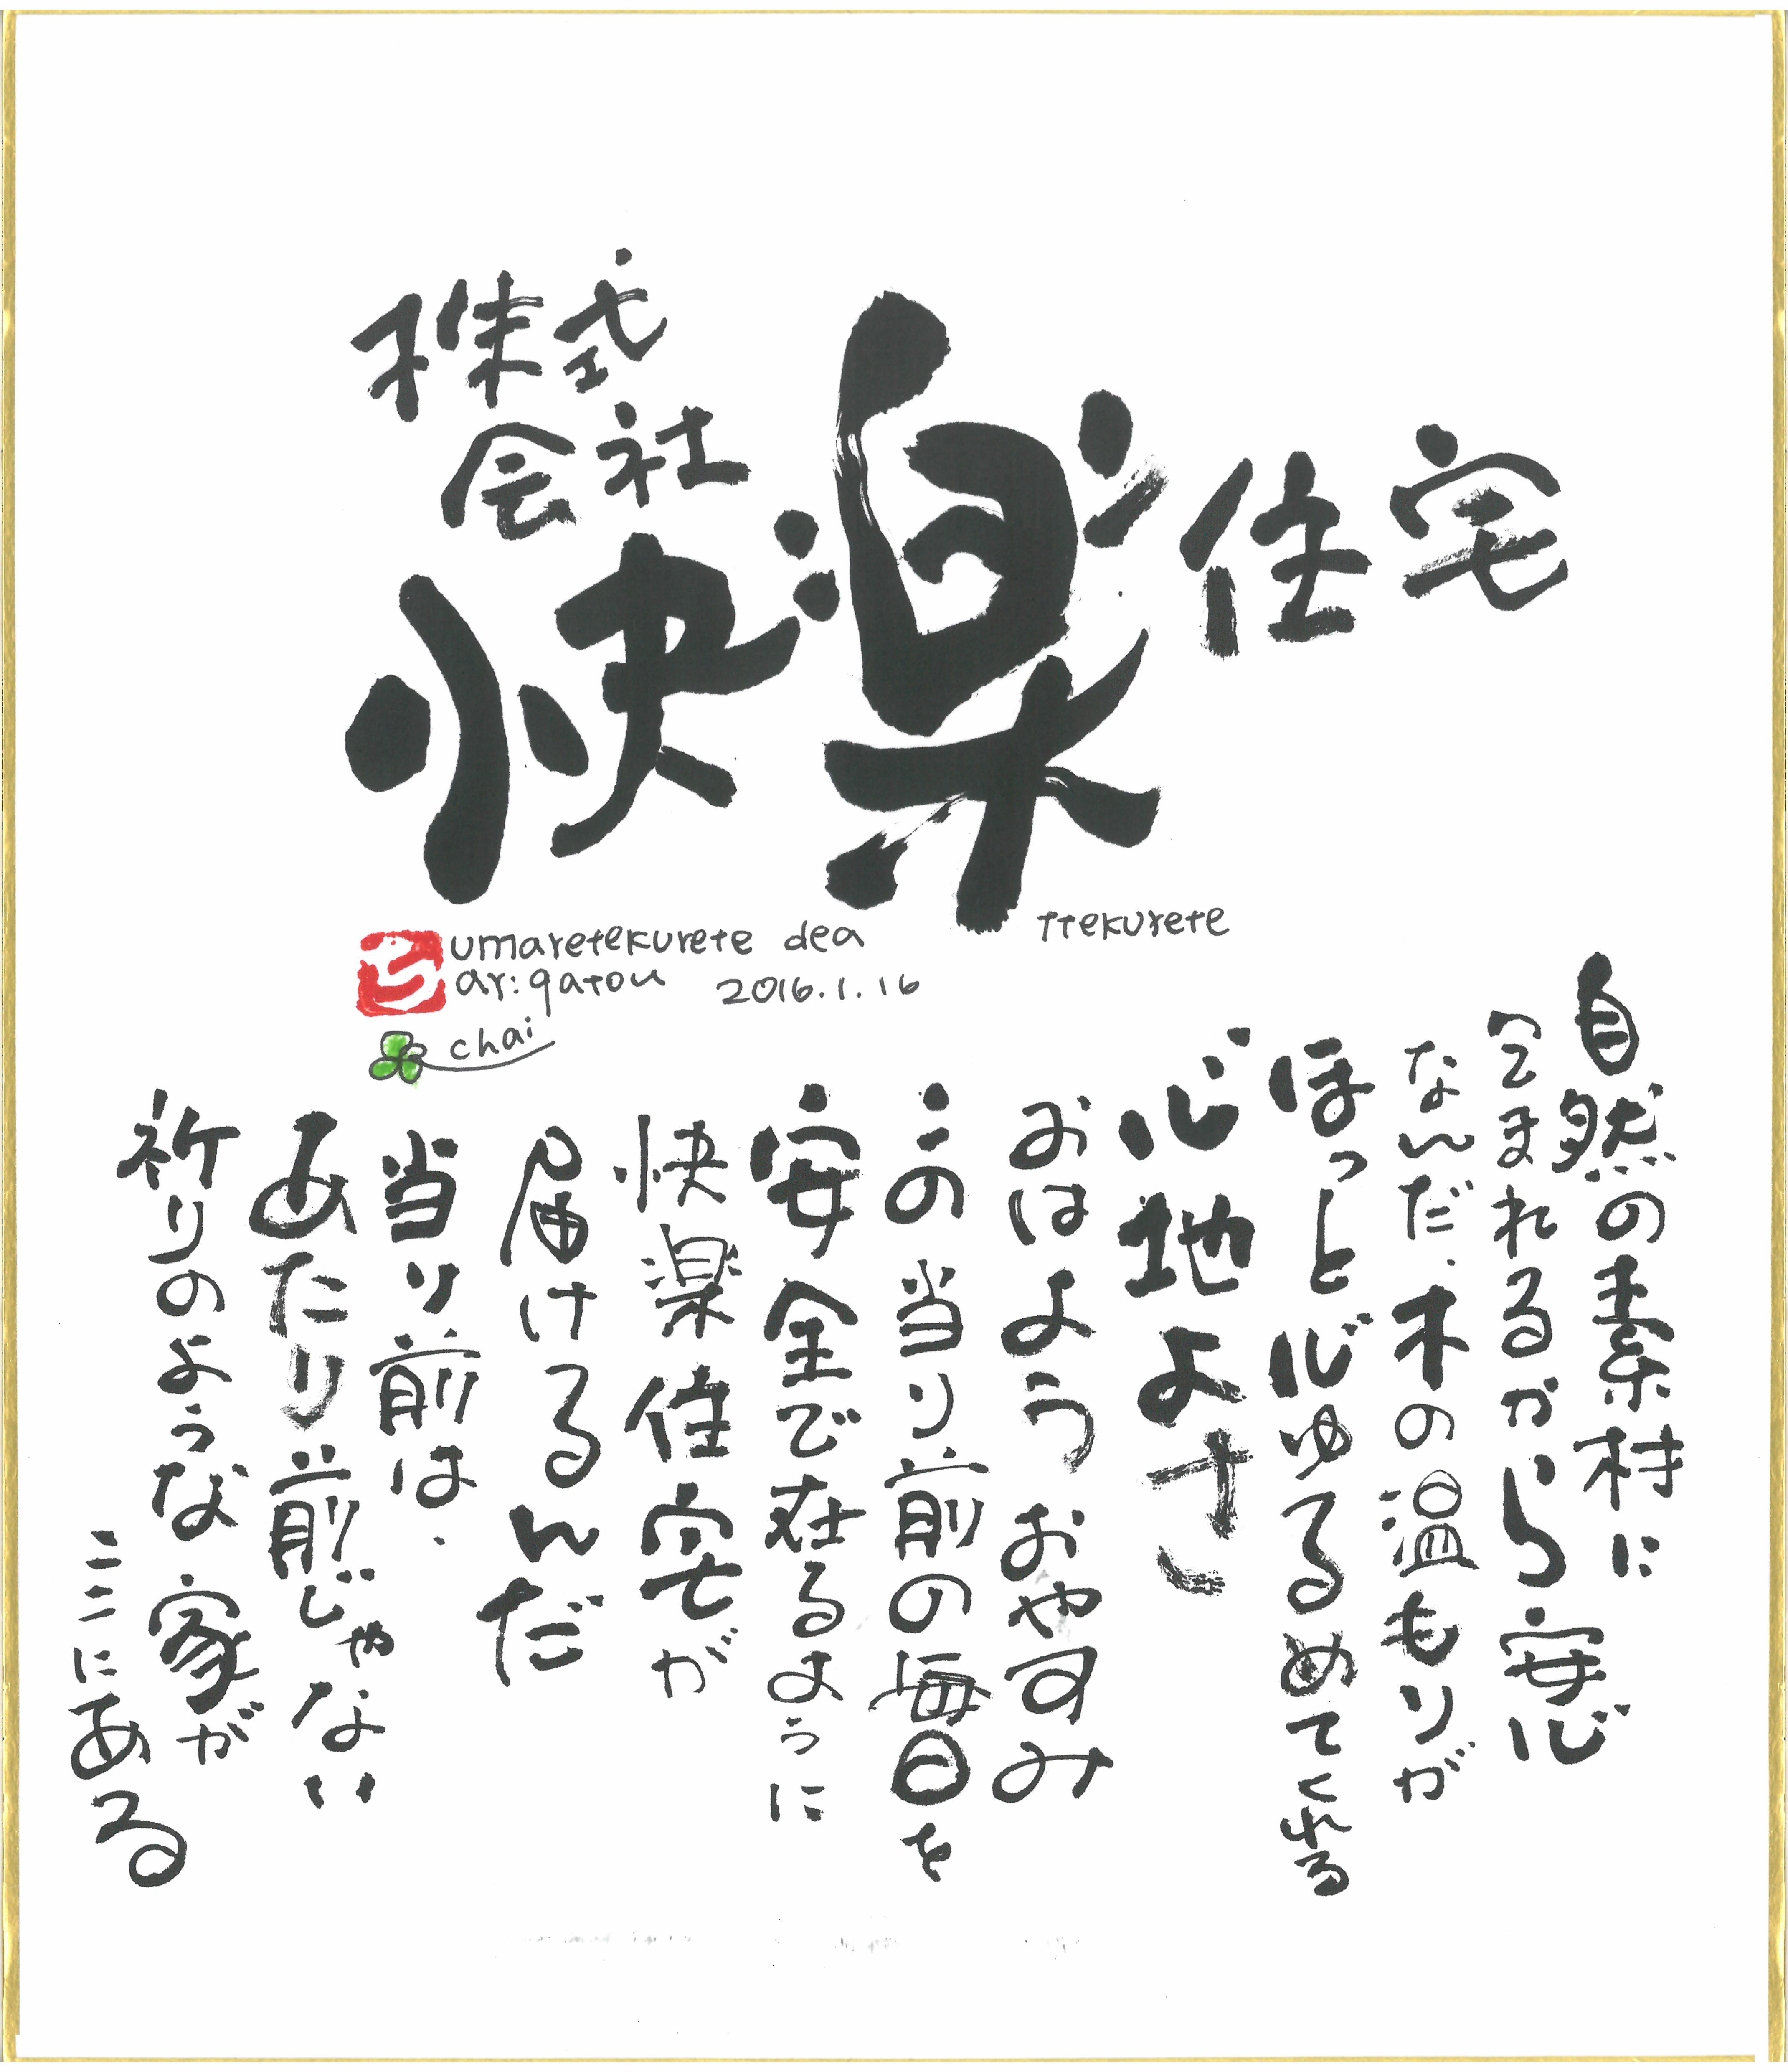 株式
会社
快楽住宅
umaretekurete dea
ttekurete
ar:gatou 2016.1.16
chai
自然の素材に
つつまれるから安心
なんだ、木の温もりが
ほっと心ゆるめてくれる
心地よさ
おはよう おやすみ
この当り前の毎日を
安全で在るように
快楽住宅が
届けるんだ
当り前は、
あたり前じゃない
祈りのような家が
ここにある